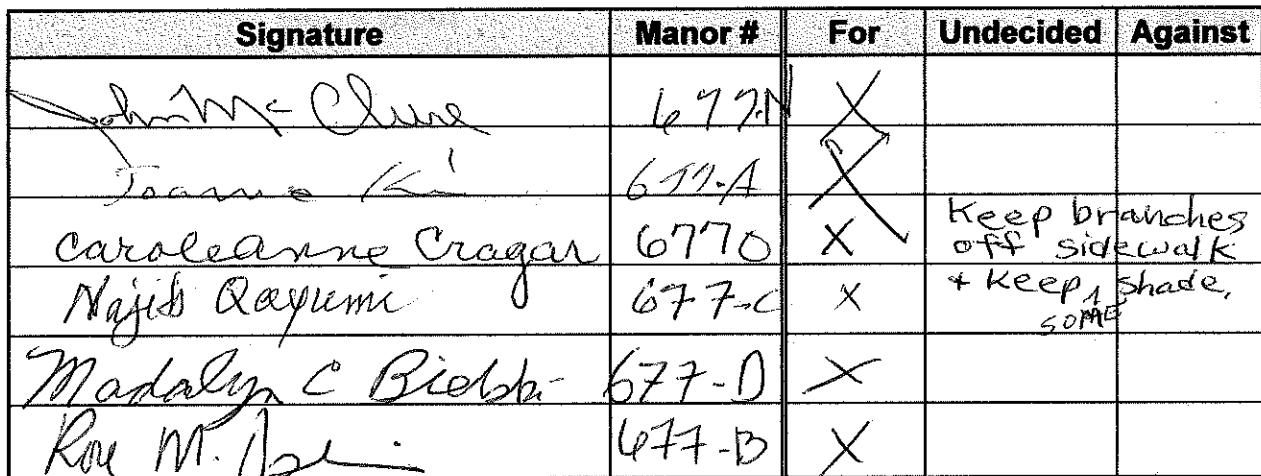 Signature Manor # For Undecided Against
John McClure 677-N X
Joanne 677-A X
Caroleanne Cragar 677O X Keep branches
off sidewalk
Najib Qayumi 677-C X + Keep some shade,
Madalyn C 677-D X
M. 677-B X